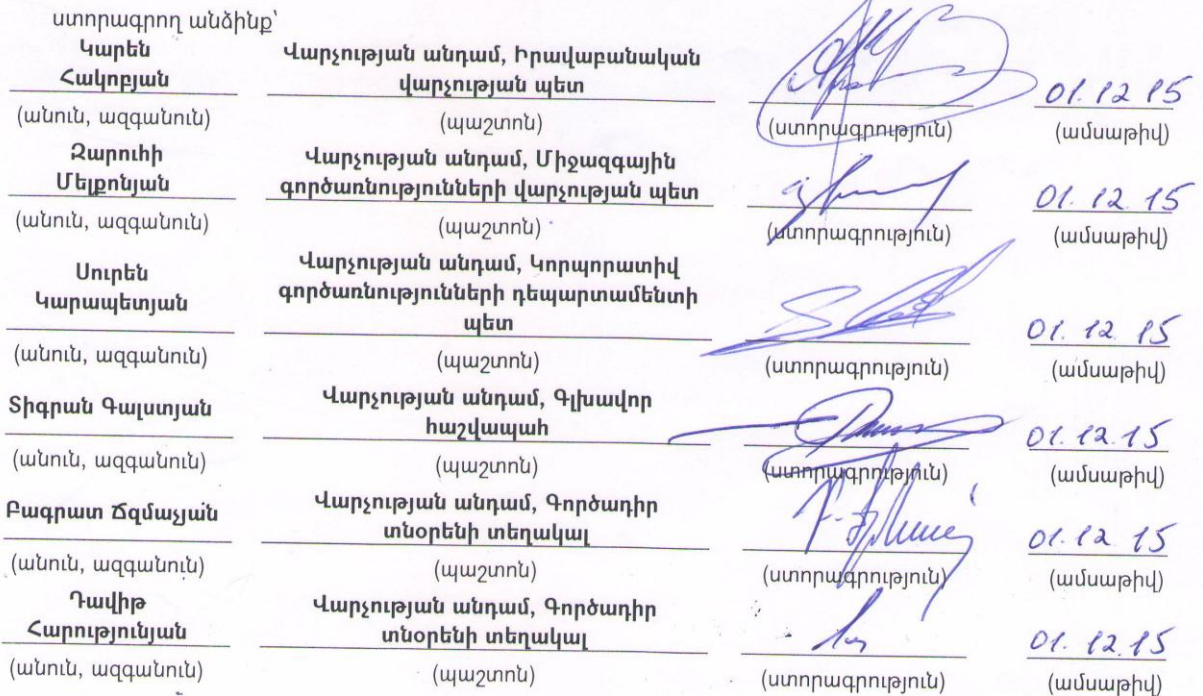 ստորագրող անձինք՝
Կարեն Հակոբյան
Վարչության անդամ, Իրավաբանական վարչության պետ
01.12 15
(անուն, ազգանուն) (պաշտոն) (ստորագրություն) (ամսաթիվ)
Զարուհի Մելքոնյան
Վարչության անդամ, Միջազգային գործառնությունների վարչության պետ
01.12.15
(անուն, ազգանուն) (պաշտոն) (ստորագրություն) (ամսաթիվ)
Սուրեն Կարապետյան
Վարչության անդամ, Կորպորատիվ գործառնությունների դեպարտամենտի պետ
01.12.15
(անուն, ազգանուն) (պաշտոն) (ստորագրություն) (ամսաթիվ)
Տիգրան Գալստյան
Վարչության անդամ, Գլխավոր հաշվապահ
01.12.15
(անուն, ազգանուն) (պաշտոն) (ստորագրություն) (ամսաթիվ)
Բագրատ Ճզմաչյան
Վարչության անդամ, Գործադիր տնօրենի տեղակալ
01.12.15
(անուն, ազգանուն) (պաշտոն) (ստորագրություն) (ամսաթիվ)
Դավիթ Հարությունյան
Վարչության անդամ, Գործադիր տնօրենի տեղակալ
01.12.15
(անուն, ազգանուն) (պաշտոն) (ստորագրություն) (ամսաթիվ)